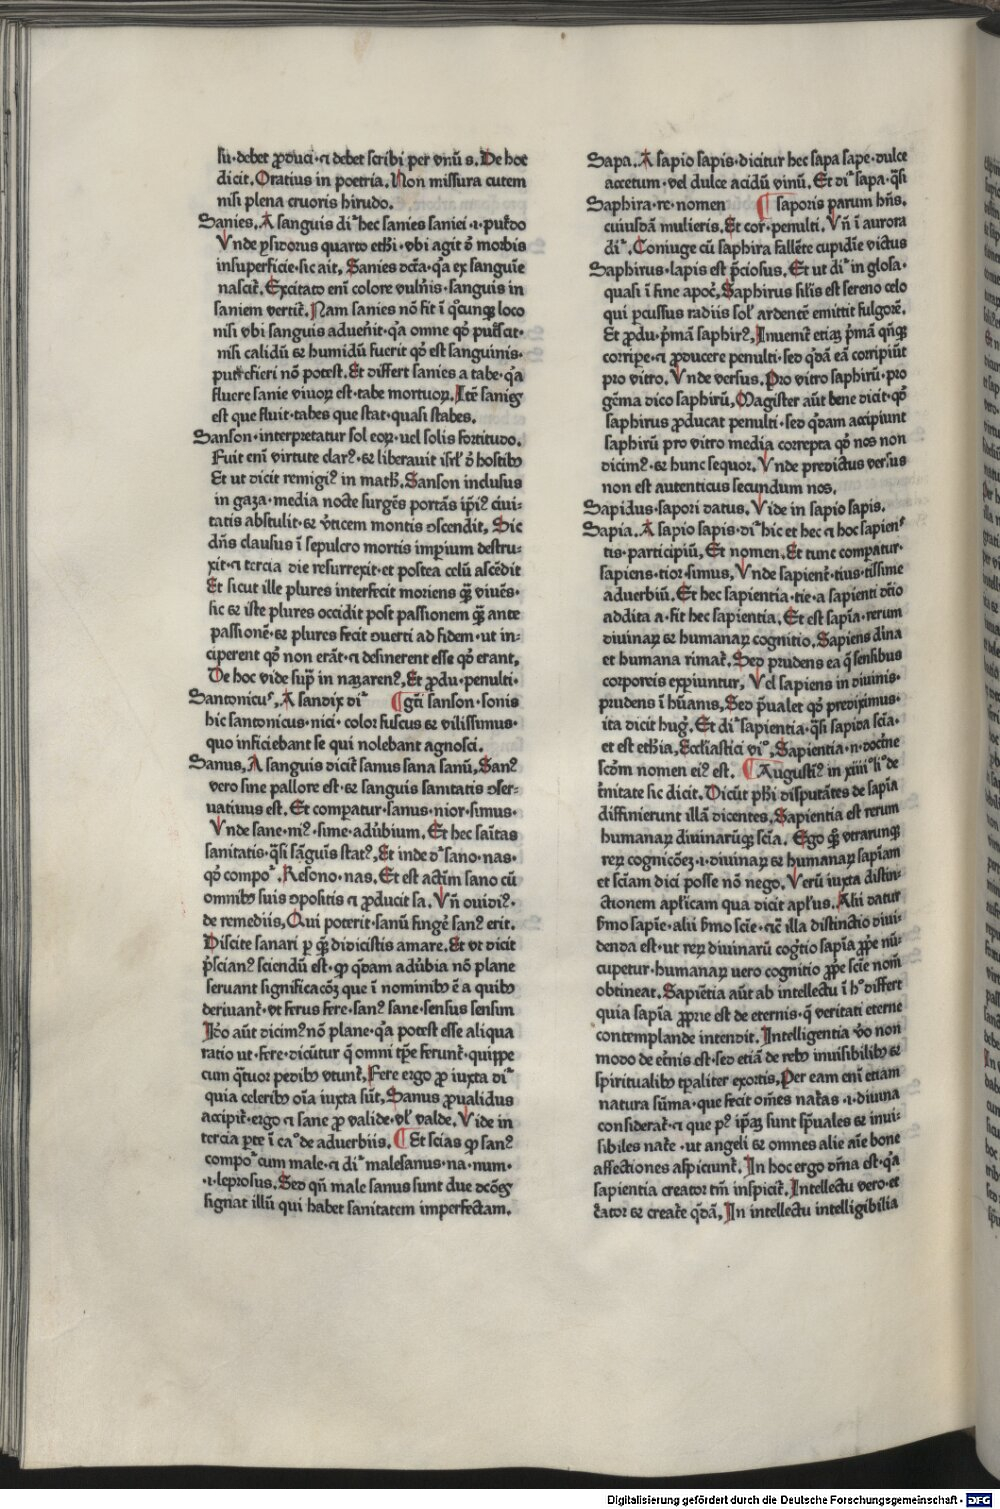 su·debet ꝓduci·⁊ debet scribi per vnū s. De hoc
dicit. Oratius in poetria. Non missura cutem
nisi plena cruoris hirudo.
Sanies. A sanguis di᷑ hec sanies saniei ·i· put᷑do
Vnde ysidorus quarto eth̄i·vbi agit ō morbis
insuperficie·sic ait. Sanies dc̄ta·qͣa ex sanguīe
nascit᷑. Excitato enī colore vulnīs·sanguis in
saniem vertit᷑. Nam sanies nō fit ī qͦcunqꝫ loco
nisi vbi sanguis adueñit·qͣa omne qꝭ put᷑scit·
nisi calidū ⁊ humidū fuerit qꝭ est sanguinis·
put᷑efieri nō potest. Et differt sanies a tabe·qͣa
fluere sanie viuoꝝ est·tabe mortuoꝝ. Itē sanies
est que fluit·tabes que stat·quasi stabes.
Sanson·interpretatur sol eoꝝ·uel solis fortitudo.
Fuit enī virtute clarꝰ·⁊ liberauit isrl̄ ō hostibꝫ
Et ut dicit remigiꝰ in math̄. Sanson inclusus
in gaza·media nocte surgēs portās ip̄iꝰ ciui⸗
tatis abstulit·⁊ v̓ticem montis ↄscendit. Sic
dn̄s clausus ī sepulcro mortis impium destru⸗
xit·⁊ tercia die resurrexit·et postea celū ascēdit
Et sicut ille plures interfecit moriens qꝫ̄ viuēs·
sic ⁊ iste plures occidit post passionem qꝫ̄ ante
passionē·⁊ plures fecit ↄuerti ad fidem·ut in⸗
ciperent qꝭ non erāt·⁊ desinerent esse qꝭ erant.
De hoc vide sup̄ in nazarenꝰ. Et ꝓdu·penulti·
Santonicuˢ. A sandix di᷑ ¶ gtī sanson·sonis
hic santonicus·nici·color fuscus ⁊ vilissimus·
quo inficiebant se qui nolebant agnosci.
Sanus. A sanguis dicit᷑ sanus sana sanū. Sanꝰ
vero sine pallore est·⁊ sanguis sanitatis ↄser⸗
uatiuus est. Et compatur·sanus·nior·simus·
Vnde sane·niꝰ·sime·adūbium. Et hec saītas
sanitatis·qͣsi sāguīs statꝰ. Et inde d᷑ sano·nas·
qꝭ compo᷑. Resono·nas. Et est actīm sano cū
omnibꝫ suis ↄpositis ⁊ ꝓducit sa. Vn̄ ouidiꝰ·
de remediis. Qui poterit·sanū fingē sanꝰ erit.
Discite sanari ꝑ qꝫ̄ didicistis amare. Et vt dicit
p̓scianꝰ sciendū est·ꝙ qͣdam adūbia nō plane
seruant significacōꝫ que ī nominibꝫ ē a quibꝫ
deriuant᷑·vt ferus fere·sanꝰ sane·sensus sensim
Ido aūt dicimꝰ nō plane·qͣa potest esse aliqua
ratio ut·fere·dicūtur q̄ omni tp̄e ferunt᷑·quippe
cum qͣtuor pedibꝫ vtunt᷑. Fere ergo ꝓ iuxta di᷑
quia celeribꝫ oīa iuxta sūt. Sanus ꝓualidus
accipit᷑·ergo ⁊ sane ꝓ valide·vl̄ valde. Vide in
tercia ꝑte ī caͦ de aduerbiis. ¶ Et scias ꝙ sanꝰ
compo᷑ cum male·⁊ di᷑ malesanus·na·num·
·i·leprosus. Sed qn̄ male sanus sunt due dcōēs
signat illū qui habet sanitatem imperfectam.
Sapa. A sapio sapis·dicitur hec sapa sape·dulce
accetum·vel dulce acidū vinū. Et di᷑ sapa·qͣsi
Saphira·re·nomen ¶ saporis parum hn̄s.
cuiusdā mulieris. Et cor᷑·penulti. Vn̄ ī aurora
di᷑. Coniuge cū saphira fallēte cupidīe victus
Saphirus·lapis est p̄ciosus. Et ut di᷑ in glosa·
quasi ī fine apoc̄. Saphirus sil̄is est sereno celo
qui ꝑcussus radiis sol̄ ardentē emittit fulgorē.
Et ꝓdu·pͥmā saphirꝰ. Inuenit᷑ etiaꝫ pͥmā qn̄qꝫ
corripe·⁊ ꝓducere penulti·sed qͥdā eā corripiūt
pro vitro. Vnde versus. Pro vitro saphirū·pro
gēma dico saphirū. Magister aūt bene dicit·qꝭ
saphirus ꝓducat penulti·sed qͥdam accipiunt
saphirū pro vitro media correpta qꝭ nos non
dicimꝰ·⁊ hunc sequor. Vnde predictus versus
non est autenticus secundum nos.
Sapidus·sapori datus. Vide in sapio sapis.
Sapia. A sapio sapis·di᷑ hic et hec ⁊ hoc sapienˢ
tis·participiū. Et nomen. Et tunc compatur·
sapiens·tior·simus. Vnde sapient᷑·tius·tissime
aduerbiū. Et hec sapientia·tie·a sapienti dtīo
addita a·fit hec sapientia. Et est sapīa·rerum
diuinaꝝ ⁊ humanaꝝ cognitio. Sapiens dīna
et humana rimat᷑. Sed prudens ea q̄ sensibus
corporeis exꝑiuntur. Vel sapiens in diuinis·
prudens ī hūanis. Sed p̄ualet qꝭ prediximus·
ita dicit hug̓. Et di᷑ sapientia·qͣsi sapida scīa·
et est eth̄ia. Ecclīastici viͦ. Sapientia·n·doctīne
scd̄m nomen eiꝰ est. ¶ Augustīꝰ in xiiiiͦ liͦ de
t᷑nitate sic dicit. Dicūt ph̄i disputātes de sapīa
diffinierunt illā dicentes. Sapientia est rerum
humanaꝝ diuinarūqꝫ scīa. Ego qꝫ̄ vtrarunqꝫ
reꝝ cognicōeꝫ·i·diuinaꝝ ⁊ humanaꝝ sapīam
et scīam dici posse nō nego. Verū iuxta distin⸗
ctionem apl̄icam qua dicit apl̄us. Alii datur
s̄mo sapīe·alii s̄mo scīe·cꝰ illa distinctio diui⸗
denda est·ut reꝝ diuinarū cogt̄io sapīa ꝓpe nū⸗
cupetur·humanaꝝ uero cognitio ꝓpe scīe nom̄
obtineat. Sapiētia aūt ab intellectu ī hͦ differt
quia sapīa ꝓprie est de eternis·q̄ veritati eterne
contemplande intendit. Intelligentia v̓o non
modo de et᷑nis est·sed etiā de rebꝫ inuisibilibꝫ ⁊
spiritualibꝫ tp̄aliter exortis. Per eam enī etiam
natura sūma·que fecit om̄es nat᷑as·i·diuina
considerat᷑·⁊ que pꝰ ip̄aꝫ sunt sp̄uales ⁊ inui⸗
sibiles nat᷑e·ut angeli ⁊ omnes alie aīe bone
affectiones aspiciunt᷑. In hoc ergo dr̄na est·qͣa
sapientia creator tm̄ inspicit᷑. Intellectu vero·et
c᷑ator ⁊ creat᷑e qͥdā. In intellectu intelligibilia
Digitalisierung gefördert durch die Deutsche Forschungsgemeinschaft - DFG